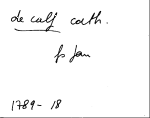 de calf cath.
fs Jan
1789-18